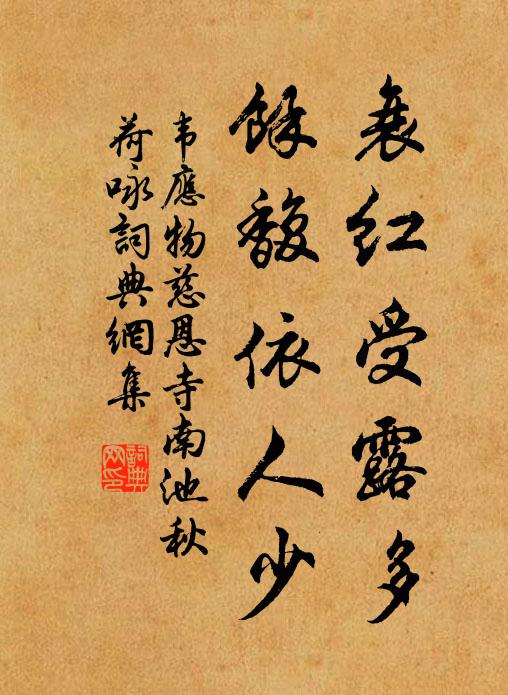 衰红受露多
餘馥依人少
韦應物慈恩寺南池秋
荷咏詞典網集
詞典网印